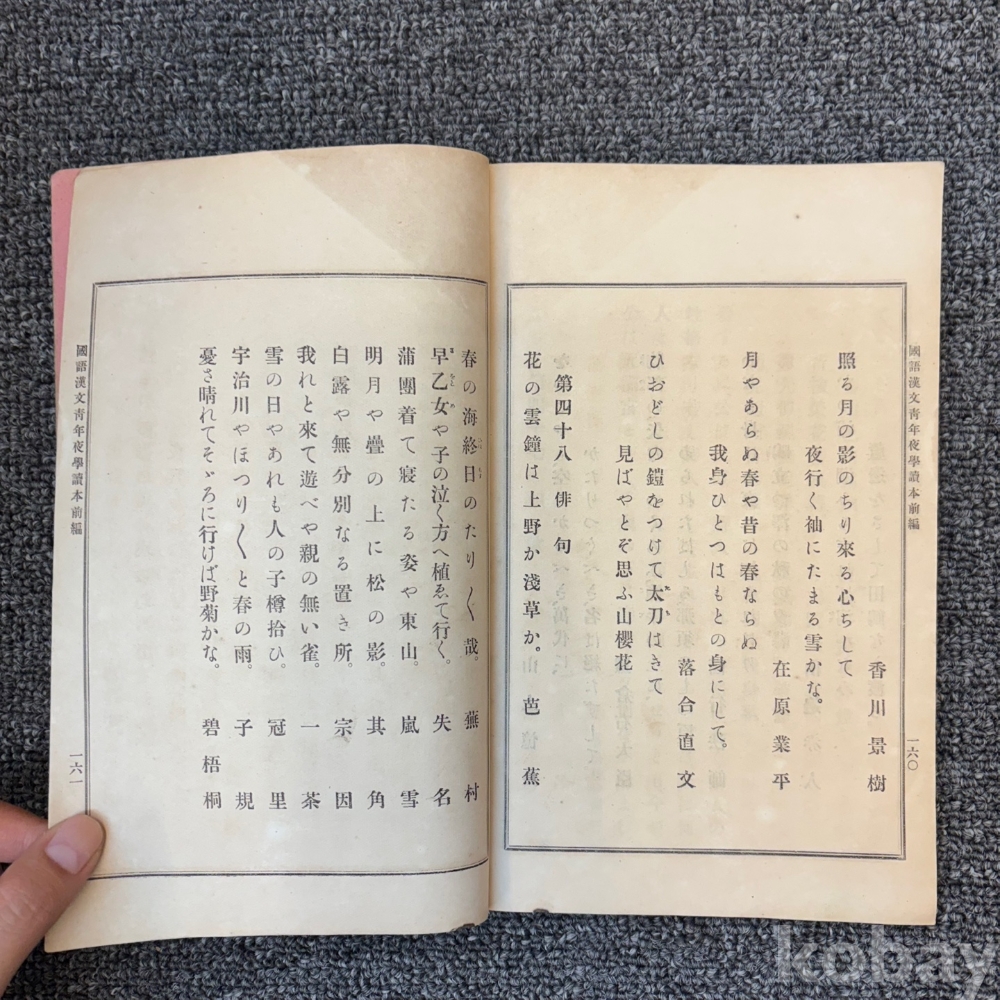 國語漢文靑年夜學讀本前編
一六〇
香川景樹
照る月の影のちり來る心ちして
夜行く袖にたまる雪かな。
在原業平
月やあらぬ春や昔の春ならぬ
我身ひとつはもとの身にして。
落合直文
ひおどしの鎧をつけて太刀はきて
見ばやとぞ思ふ山櫻花
第四十八　俳句
花の雲鐘は上野か淺草か。　芭蕉
春の海終日のたり〱哉。　蕪村
早乙女や子の泣く方へ植ゑて行く。　失名
蒲團着て寢たる姿や東山。　嵐雪
明月や疊の上に松の影。　其角
白露や無分別なる置き所。　宗因
我れと來て遊べや親の無い雀。　一茶
雪の日やあれも人の子樽拾ひ。　冠里
宇治川やほつり〱と春の雨。　子規
憂さ晴れてそゞろに行けば野菊かな。　碧梧桐
國語漢文靑年夜學讀本前編
一六一
kobay